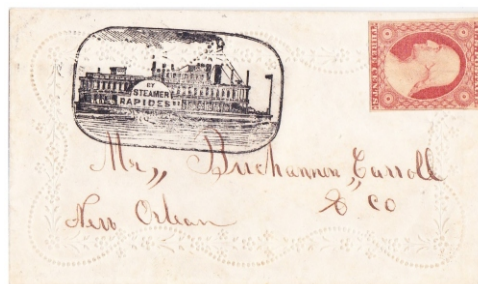 BY
STEAMER
RAPIDES
THREE CENTS
Mr,, Buchannon, Carroll
& Co
New Orlean